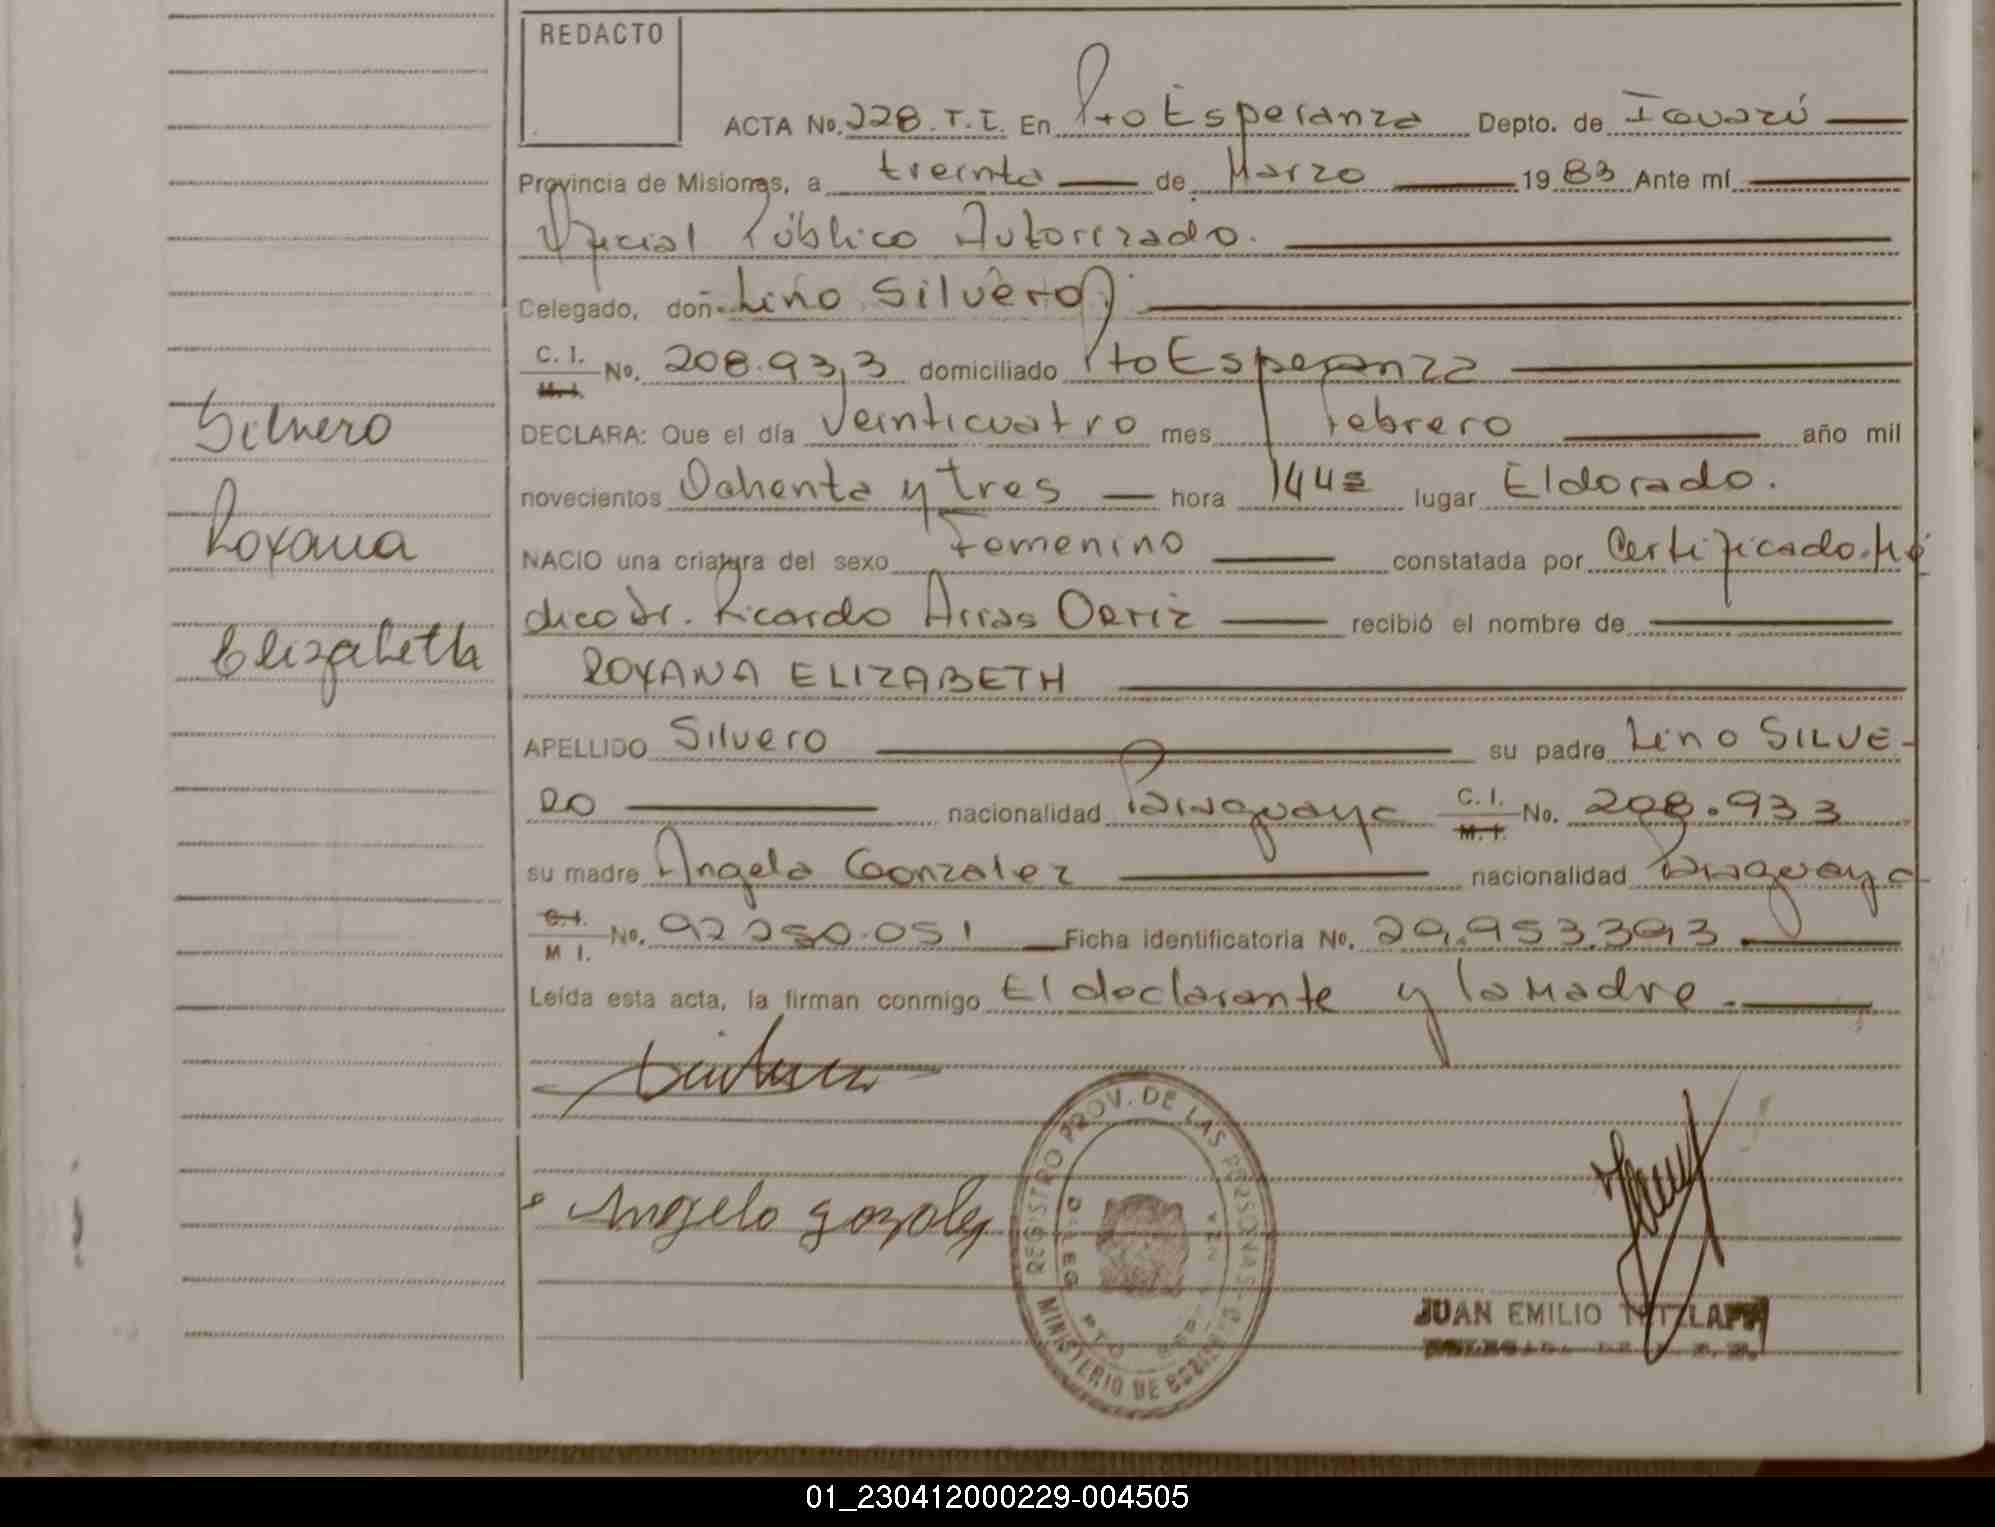 REDACTO
ACTA No. 228. T. I. En Pto Esperanza Depto. de Iguazú
Provincia de Misiones, a treinta de Marzo 19 83 Ante mí
Oficial Público Autorizado.
Celegado, doñ Lino Silvero
C. I. M. I. No. 208.933 domiciliado Pto Esperanza
DECLARA: Que el día Veinticuatro mes Febrero año mil
Silvero
novecientos Ochenta y tres hora lugar Eldorado.
Roxana
NACIO una criatura del sexo Femenino constatada por Certificado Mé
dico Dr. Ricardo Arias Ortiz recibió el nombre de
Elizabeth
ROXANA ELIZABETH
APELLIDO Silvero su padre Lino SILVE-
RO nacionalidad Paraguaya C. I. M. I. No. 208.933
su madre Angela Gonzalez nacionalidad Paraguaya
C. I. M I. No. 92 250.051 Ficha identificatoria No. 29.953.393
Leída esta acta, la firman conmigo El declarante y la Madre.-
Angela gozalez
REGISTRO PROV. DE LAS PERSONAS
MINISTERIO DE GOBIERNO
DELEG. PTO. ESPERANZA
JUAN EMILIO TETZLAFF
01_230412000229-004505